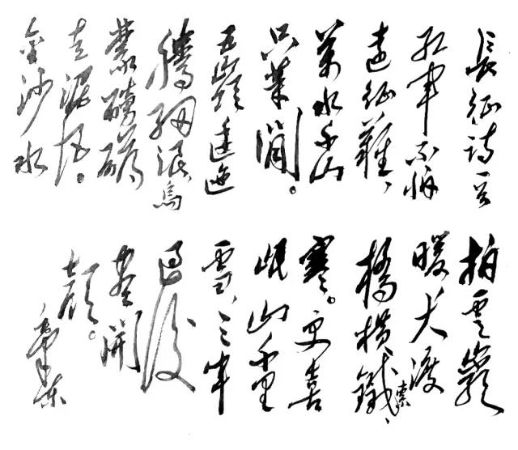 長征詩一首
紅軍不怕
遠征難、
萬水千山
只等閑。
五嶺逶迤
騰細浪烏
蒙磅礴
走泥丸。
金沙水
拍雲巖
暖大渡
橋橫鐵索、
寒。更喜
岷山千里
雪、三軍
過後
盡開
顏。
毛澤東